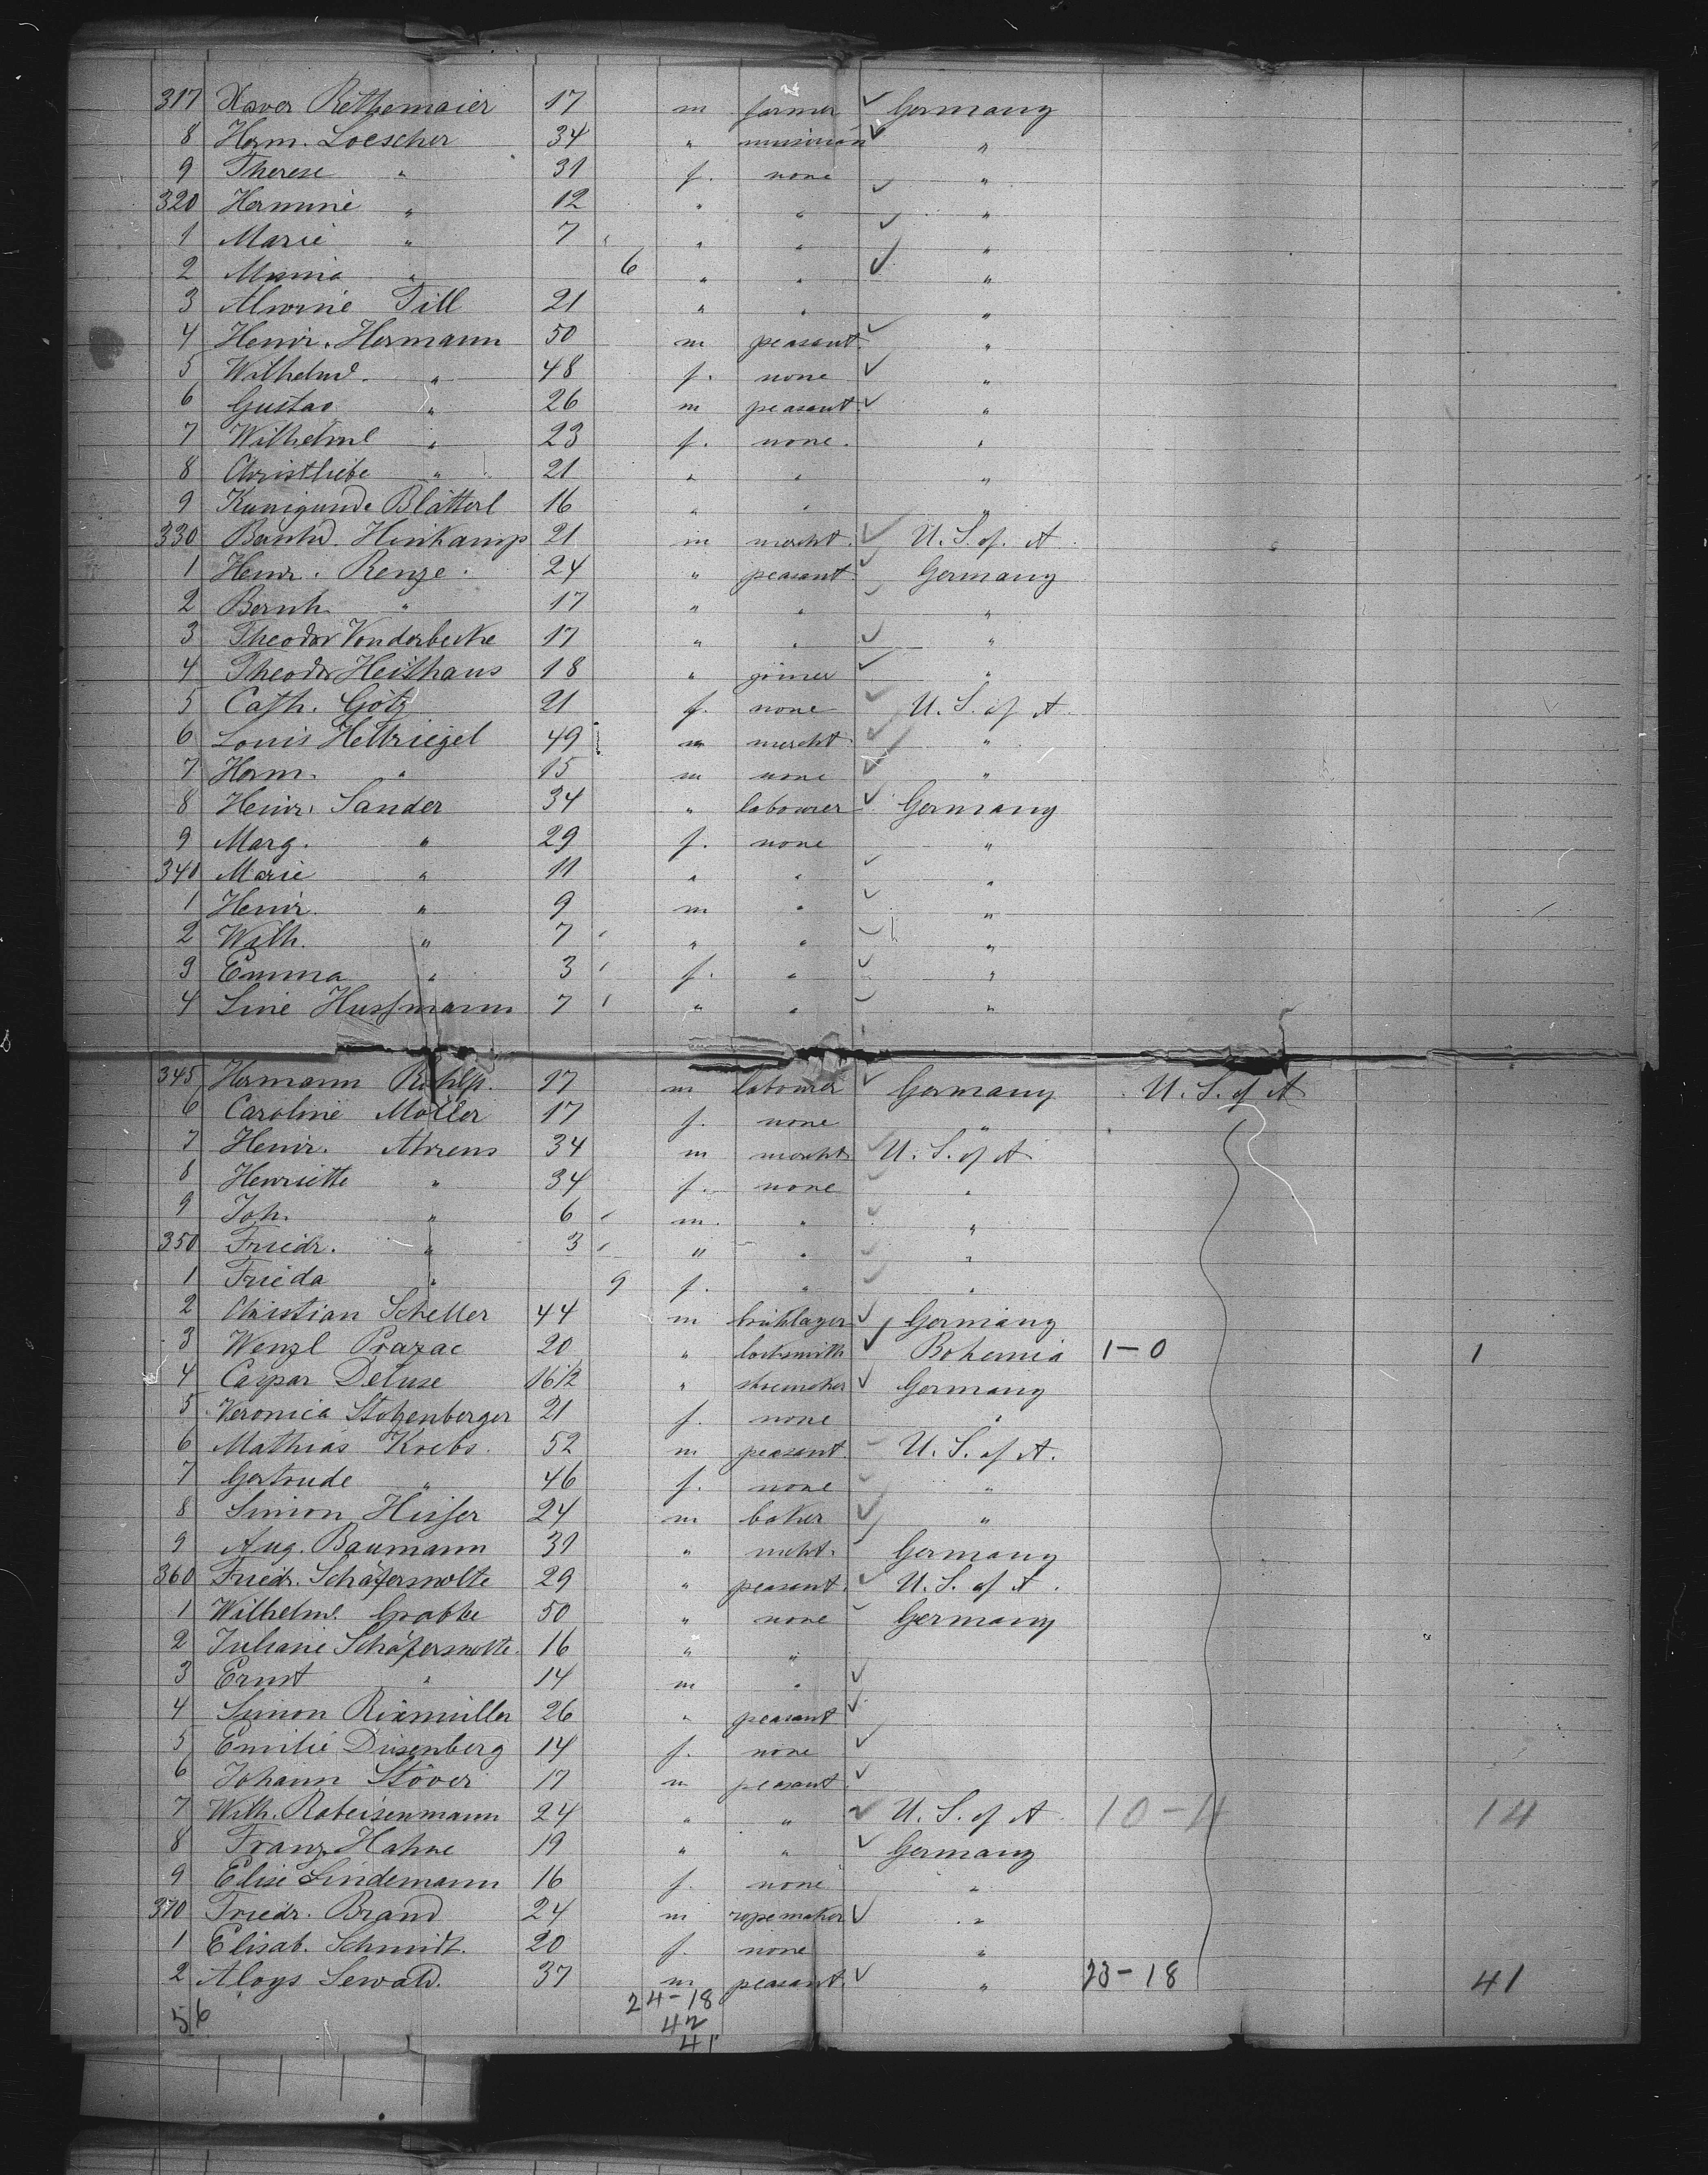 317 Xaver Rethemaier 17 m farmer ✓ Germany
8 Herm. Loescher 34 " musician ✓ "
9 Therese " 31 f. none "
320 Hermine " 12 " " ✓ "
1 Marie " 7 " " ✓ "
2 Minna " 6 " " ✓ "
3 Alwine Till 21 " " "
4 Heinr. Hermann 50 m peasant. ✓ "
5 Wilhelmd. " 48 f. none ✓ "
6 Gustav " 26 m peasant. ✓ "
7 Wilhelme " 23 f. none. "
8 Christliebe " 21 " " "
9 Kunigunde Blätterl 16 " " "
330 Bernhd. Hinkamp 21 m mercht. ✓ U. S. of. A.
1 Heinr. Renze. 24 " peasant ✓ Germany
2 Bernh. " 17 " " ✓ "
3 Theodor Vonderbecke 17 " " ✓ "
4 Theodor Heithaus 18 " joiner ✓ "
5 Cath. Götz 21 f. none ✓ U. S. of A.
6 Louis Hettriegel 49 m mercht. ✓ "
7 Herm. " 15 m none ✓ "
8 Heinr. Sander 34 " labourer ✓ Germany
9 Marg. " 29 f. none "
340 Marie " 11 " " ✓ "
1 Heinr. " 9 m " ✓ "
2 Wilh. " 7 " " ✓ "
3 Emma " 3 f. " ✓ "
4 Line Hussmann 7 " " ✓ "
345 Hermann 17 m labourer ✓ Germany U. S. of A
6 Caroline Möller 17 f. none "
7 Heinr. Ahrens 34 m mercht ✓ U. S. of A
8 Henriette " 34 f. none ✓ "
9 Joh. " 6 m. " ✓ "
350 Friedr. " 3 " " ✓ "
1 Frieda " 9 f. " ✓ "
2 Christian Scheller 44 m bricklayer ✓ Germany
3 Wenzl Prazac 20 " locksmith ✓ Bohemia 1-0 1
4 Caspar Deluse 16 1/2 " shoemaker ✓ Germany
5 Veronica Stohenberger 21 f. none "
6 Mathias Krebs. 52 m peasant. U. S. of A.
7 Gertrude " 46 f. none ✓ "
8 Simon Heisser 24 m baker ✓ "
9 Aug. Baumann 31 " mcht. Germany
360 Friedr. Schäfersnolte 29 " peasant. ✓ U. S. of A.
1 Wilhelm. Grabbe 50 " none Germany
2 Juliane Schäfersnolte. 16 " "
3 Ernst " 14 m " ✓
4 Simon Rixmüller 26 " peasant ✓
5 Emilie Düsenberg 14 f. none ✓
6 Johann Stöver 17 m peasant. ✓
7 Wilh. Rabeisenmann 24 " " ✓ U. S. of A 10-4 14
8 Franz Hahne 19 " " ✓ Germany
9 Elise Lindemann 16 f. none "
370 Friedr. Brand 24 m ropemaker ✓ "
1 Elisab. Schmidt. 20 f. none "
2 Aloys Sewald. 37 m peasant. ✓ " 23-18 41
56 24-18
42
41